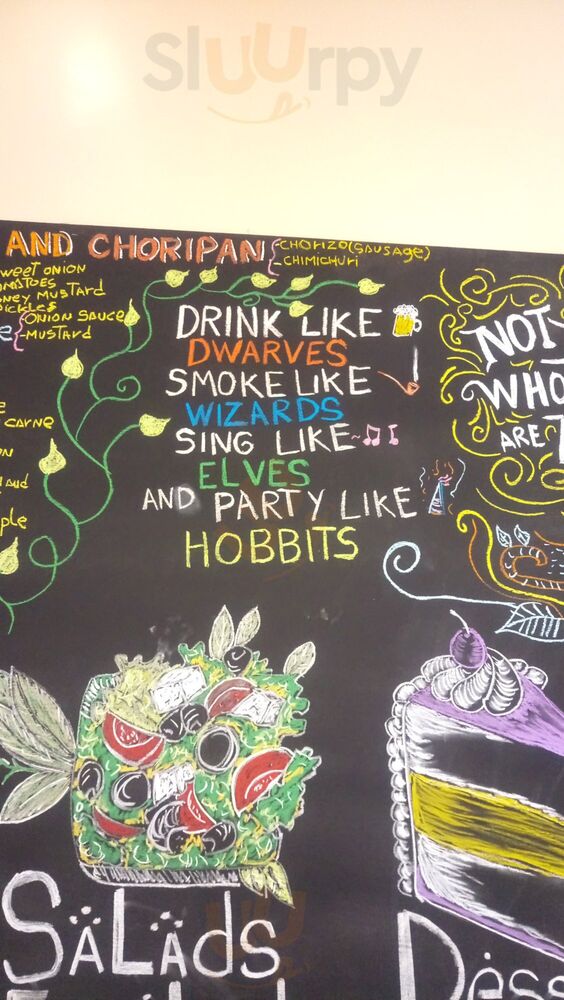 Sluurpy
AND CHORIPAN
CHORIZO(SAUSAGE)
CHIMICHURI
SWEET ONION
MUSTARD
PICKLES
ONION SAUCE
MUSTARD
CARNE
DRINK LIKE
DWARVES
SMOKE LIKE
WIZARDS
SING LIKE
ELVES
AND PARTY LIKE
HOBBITS
NOT
WHO
ARE
SALADS